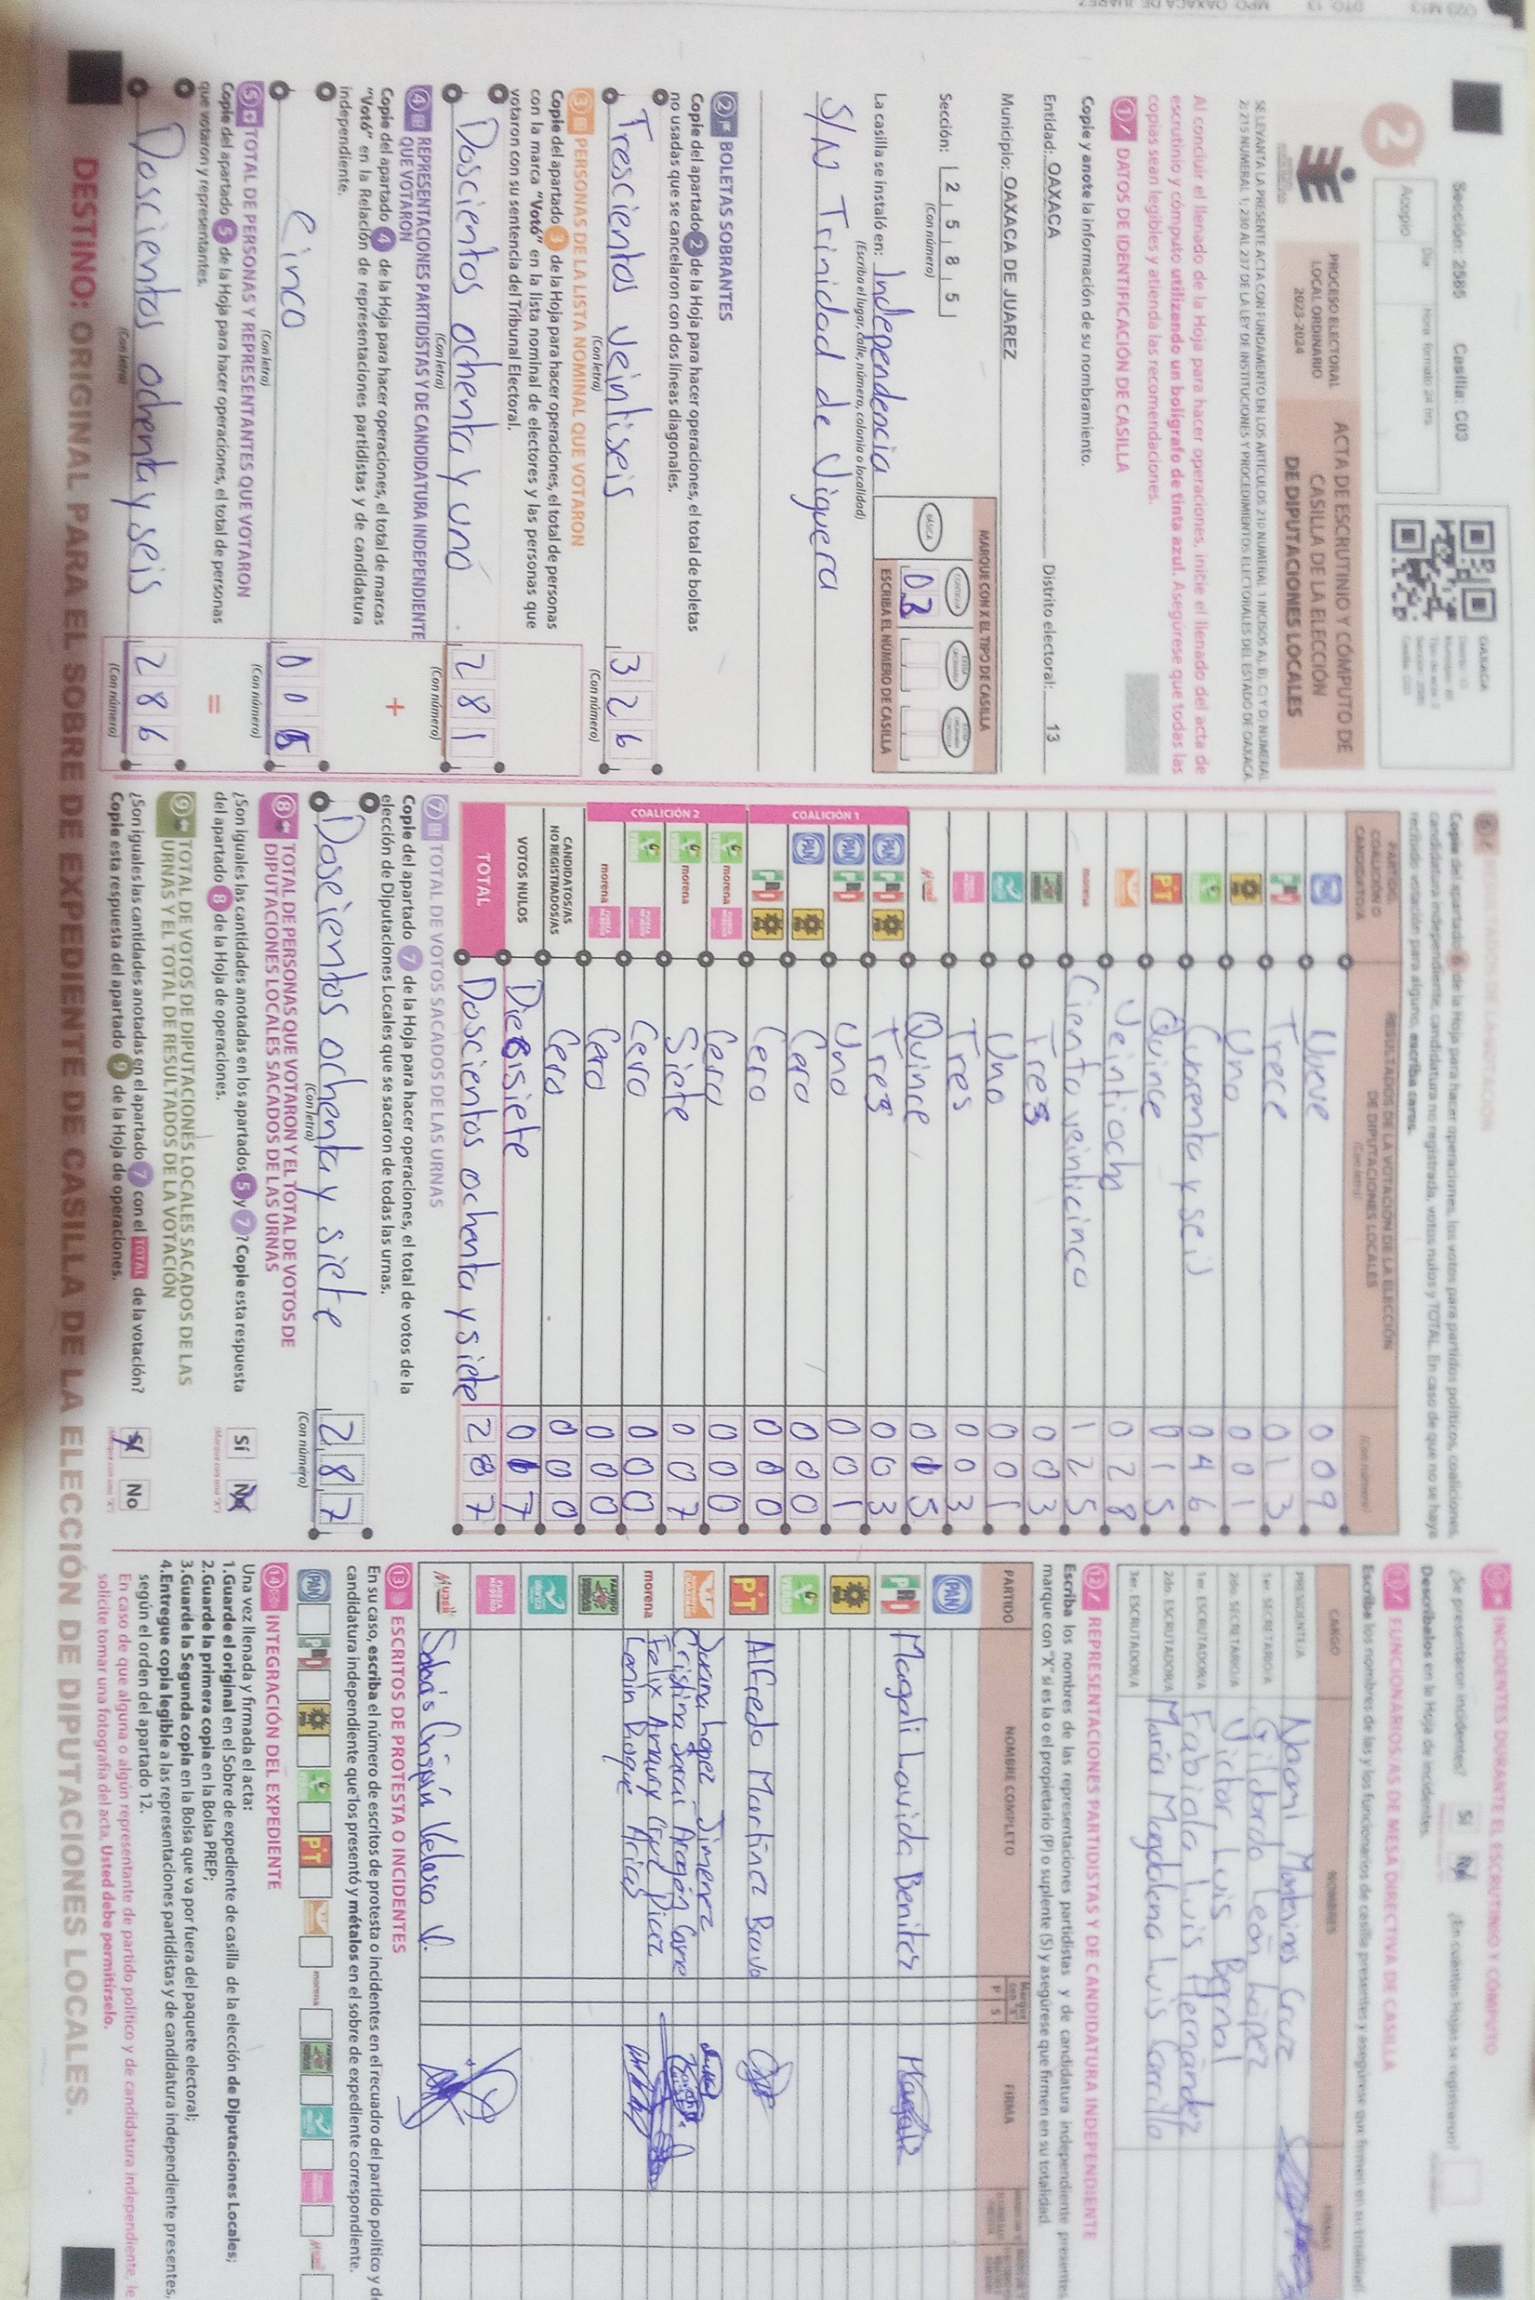 Sección: 2585 Casilla: C03
2
Acopio
Día
Hora formato 24 hrs
OAXACA
PROCESO ELECTORAL
LOCAL ORDINARIO
2023-2024
ACTA DE ESCRUTINIO Y CÓMPUTO DE
CASILLA DE LA ELECCIÓN
DE DIPUTACIONES LOCALES
Al concluir el llenado de la Hoja para hacer operaciones, inicie el llenado del acta de
escrutinio y cómputo utilizando un bolígrafo de tinta azul. Asegúrese que todas las
copias sean legibles y atienda las recomendaciones.
1 DATOS DE IDENTIFICACIÓN DE CASILLA
Copie y anote la información de su nombramiento.
Entidad: OAXACA Distrito electoral: 13
Municipio: OAXACA DE JUAREZ
Sección: 2 5 8 5
(Con número)
MARQUE CON X EL TIPO DE CASILLA
BÁSICA
ESCRIBA EL NUMERO DE CASILLA
03
La casilla se instaló en: Independencia
(Escriba el lugar, calle, número, colonia o localidad)
S/N Trinidad de Viguera
2 BOLETAS SOBRANTES
Copie del apartado 2 de la Hoja para hacer operaciones, el total de boletas
no usadas que se cancelaron con dos líneas diagonales.
Trescientos veintiseis 3 2 6
(Con letra) (Con número)
3 PERSONAS DE LA LISTA NOMINAL QUE VOTARON
Copie del apartado 3 de la Hoja para hacer operaciones, el total de personas
con la marca "Votó" en la lista nominal de electores y las personas que
votaron con su sentencia del Tribunal Electoral.
Doscientos ochenta y uno 2 8 1
(Con letra) (Con número)
4 REPRESENTACIONES PARTIDISTAS Y DE CANDIDATURA INDEPENDIENTE
QUE VOTARON
Copie del apartado 4 de la Hoja para hacer operaciones, el total de marcas
"Votó" en la Relación de representaciones partidistas y de candidatura
independiente.
+
Cinco 0 0 5
(Con letra) (Con número)
5 TOTAL DE PERSONAS Y REPRESENTANTES QUE VOTARON
Copie del apartado 5 de la Hoja para hacer operaciones, el total de personas
que votaron y representantes.
=
Doscientos ochenta y seis 2 8 6
(Con letra) (Con número)
Copie del apartado 6 de la Hoja para hacer operaciones, los votos para partidos políticos, coaliciones,
candidatura independiente, candidatura no registrada, votos nulos y TOTAL. En caso de que no se haya
recibido votación para alguno, escriba ceros.
PARTIDO,
COALICIÓN O
CANDIDATO/A
RESULTADOS DE LA VOTACIÓN DE LA ELECCIÓN
DE DIPUTACIONES LOCALES
(Con letra)
(Con número)
PAN Nueve 0 0 9
PRI Trece 0 1 3
PRD Uno 0 0 1
VERDE Cuarenta y seis 0 4 6
PT Quince 0 1 5
Veintiocho 0 2 8
morena Ciento veinticinco 1 2 5
Tres 0 0 3
Uno 0 0 1
Tres 0 0 3
Mujer Quince 0 1 5
COALICIÓN 1
PAN PRI PRD Tres 0 0 3
PAN PRI Uno 0 0 1
PAN PRD Cero 0 0 0
PRI PRD Cero 0 0 0
COALICIÓN 2
VERDE morena Cero 0 0 0
VERDE morena Siete 0 0 7
VERDE Cero 0 0 0
morena Cero 0 0 0
CANDIDATOS/AS
NO REGISTRADOS/AS
Cero 0 0 0
VOTOS NULOS Diecisiete 0 1 7
TOTAL Doscientos ochenta y siete 2 8 7
7 TOTAL DE VOTOS SACADOS DE LAS URNAS
Copie del apartado 7 de la Hoja para hacer operaciones, el total de votos de la
elección de Diputaciones Locales que se sacaron de todas las urnas.
Doscientos ochenta y siete 2 8 7
(Con letra) (Con número)
8 TOTAL DE PERSONAS QUE VOTARON Y EL TOTAL DE VOTOS DE
DIPUTACIONES LOCALES SACADOS DE LAS URNAS
¿Son iguales las cantidades anotadas en los apartados 5 y 7? Copie esta respuesta
del apartado 8 de la Hoja de operaciones.
Sí No
9 TOTAL DE VOTOS DE DIPUTACIONES LOCALES SACADOS DE LAS
URNAS Y EL TOTAL DE RESULTADOS DE LA VOTACIÓN
¿Son iguales las cantidades anotadas en el apartado 7 con el TOTAL de la votación?
Copie esta respuesta del apartado 9 de la Hoja de operaciones.
Sí No
INCIDENTES DURANTE EL ESCRUTINIO Y CÓMPUTO
¿Se presentaron incidentes? Sí No ¿En cuántas Hojas se registraron?
Descríbalos en la Hoja de incidentes.
FUNCIONARIOS/AS DE MESA DIRECTIVA DE CASILLA
Escriba los nombres de las y los funcionarios de casilla presentes y asegúrese que firmen en su totalidad.
CARGO NOMBRES FIRMAS
PRESIDENTE/A Naomi Montesinos Cruz
1er. SECRETARIO/A Gildardo León López
2do. SECRETARIO/A Victor Luis Bernal
1er. ESCRUTADOR/A Fabiola Luis Hernández
2do. ESCRUTADOR/A María Magdalena Luis Carrillo
3er. ESCRUTADOR/A
12 REPRESENTACIONES PARTIDISTAS Y DE CANDIDATURA INDEPENDIENTE
Escriba los nombres de las representaciones partidistas y de candidatura independiente presentes,
marque con "X" si es la o el propietario (P) o suplente (S) y asegúrese que firmen en su totalidad.
PARTIDO NOMBRE COMPLETO P S FIRMA
PAN
PRI Magali Lavida Benitez
PRD
VERDE
PT Alfredo Martínez Bravo
López Jimenez
Cristina Aragón
morena Felix Amaury
Roque Arias
Mujer Velasco V.
13 ESCRITOS DE PROTESTA O INCIDENTES
En su caso, escriba el número de escritos de protesta o incidentes en el recuadro del partido político y de
candidatura independiente que los presentó y métalos en el sobre de expediente correspondiente.
PAN PRI PRD VERDE PT morena Mujer
14 INTEGRACIÓN DEL EXPEDIENTE
Una vez llenada y firmada el acta:
1.Guarde el original en el Sobre de expediente de casilla de la elección de Diputaciones Locales;
2.Guarde la primera copia en la Bolsa PREP;
3.Guarde la Segunda copia en la Bolsa que va por fuera del paquete electoral;
4.Entregue copia legible a las representaciones partidistas y de candidatura independiente presentes,
según el orden del apartado 12.
En caso de que alguna o algún representante de partido político y de candidatura independiente, le
solicite tomar una fotografía del acta, Usted debe permitírselo.
DESTINO: ORIGINAL PARA EL SOBRE DE EXPEDIENTE DE CASILLA DE LA ELECCIÓN DE DIPUTACIONES LOCALES.